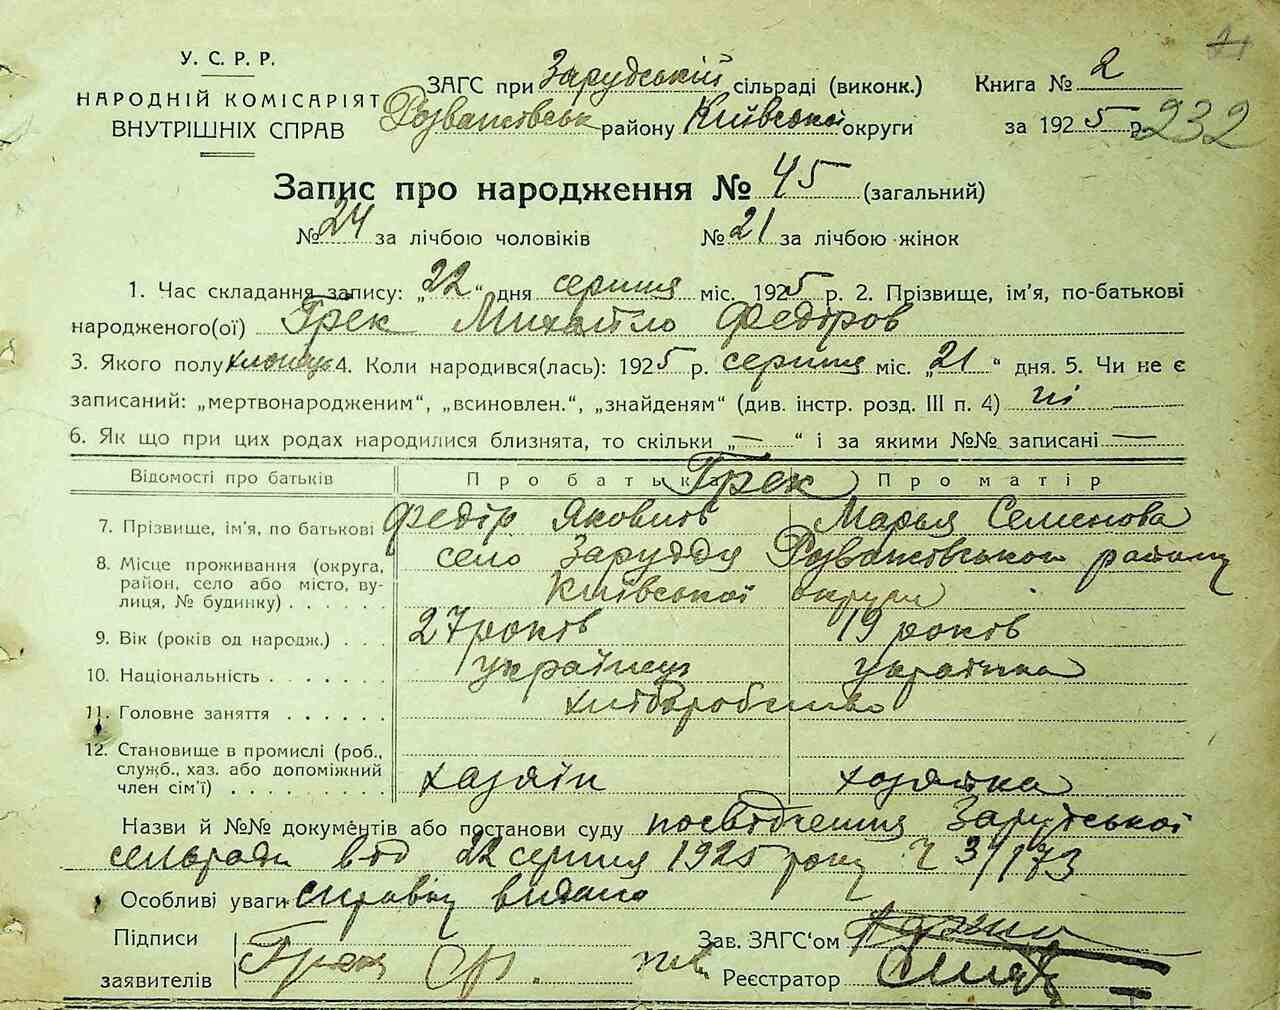 У. С. Р. Р.
НАРОДНІЙ КОМІСАРІЯТ
ВНУТРІШНІХ СПРАВ
ЗАГС при Зарудській сільраді (виконк.)
Розважівськ району Київської округи
Книга № 2
за 1925 р. 232
Запис про народження № 45 (загальний)
№ 24 за лічбою чоловіків № 21 за лічбою жінок
1. Час складання запису: „22" дня серпня міс. 1925 р. 2. Прізвище, ім'я, по-батькові
народженого(ої) Грек Михайло Федоров
3. Якого полу хлопець 4. Коли народився(лась): 1925 р. серпня міс. „21" дня. 5. Чи не є
записаний: „мертвонародженим", „всиновлен.", „знайденям" (див. інстр. розд. III п. 4) ні
6. Як що при цих родах народилися близнята, то скільки „—" і за якими №№ записані —
Відомості про батьків Про батька Грек Про матір
7. Прізвище, ім'я, по батькові Федір Якович Марья Семенова
8. Місце проживання (округа, район, село або місто, вулиця, № будинку) . . . . . . село Заруддя Розважівського району
Київської округи
9. Вік (років од народж.) . . . 27 років 19 років
10. Національність . . . . . . . українець українка
11. Головне заняття . . . . . . хліборобство
12. Становище в промислі (роб., служб., хаз. або допоміжний член сім'ї) . . . . . . . . . хазяїн хозяйка
Назви й №№ документів або постанови суду посвідчення Зарудської
сельради від 22 серпня 1925 року Ч 3/173
Особливі уваги справку видано
Підписи
заявителів Грек Ф.
Зав. ЗАГС'ом
Реєстратор